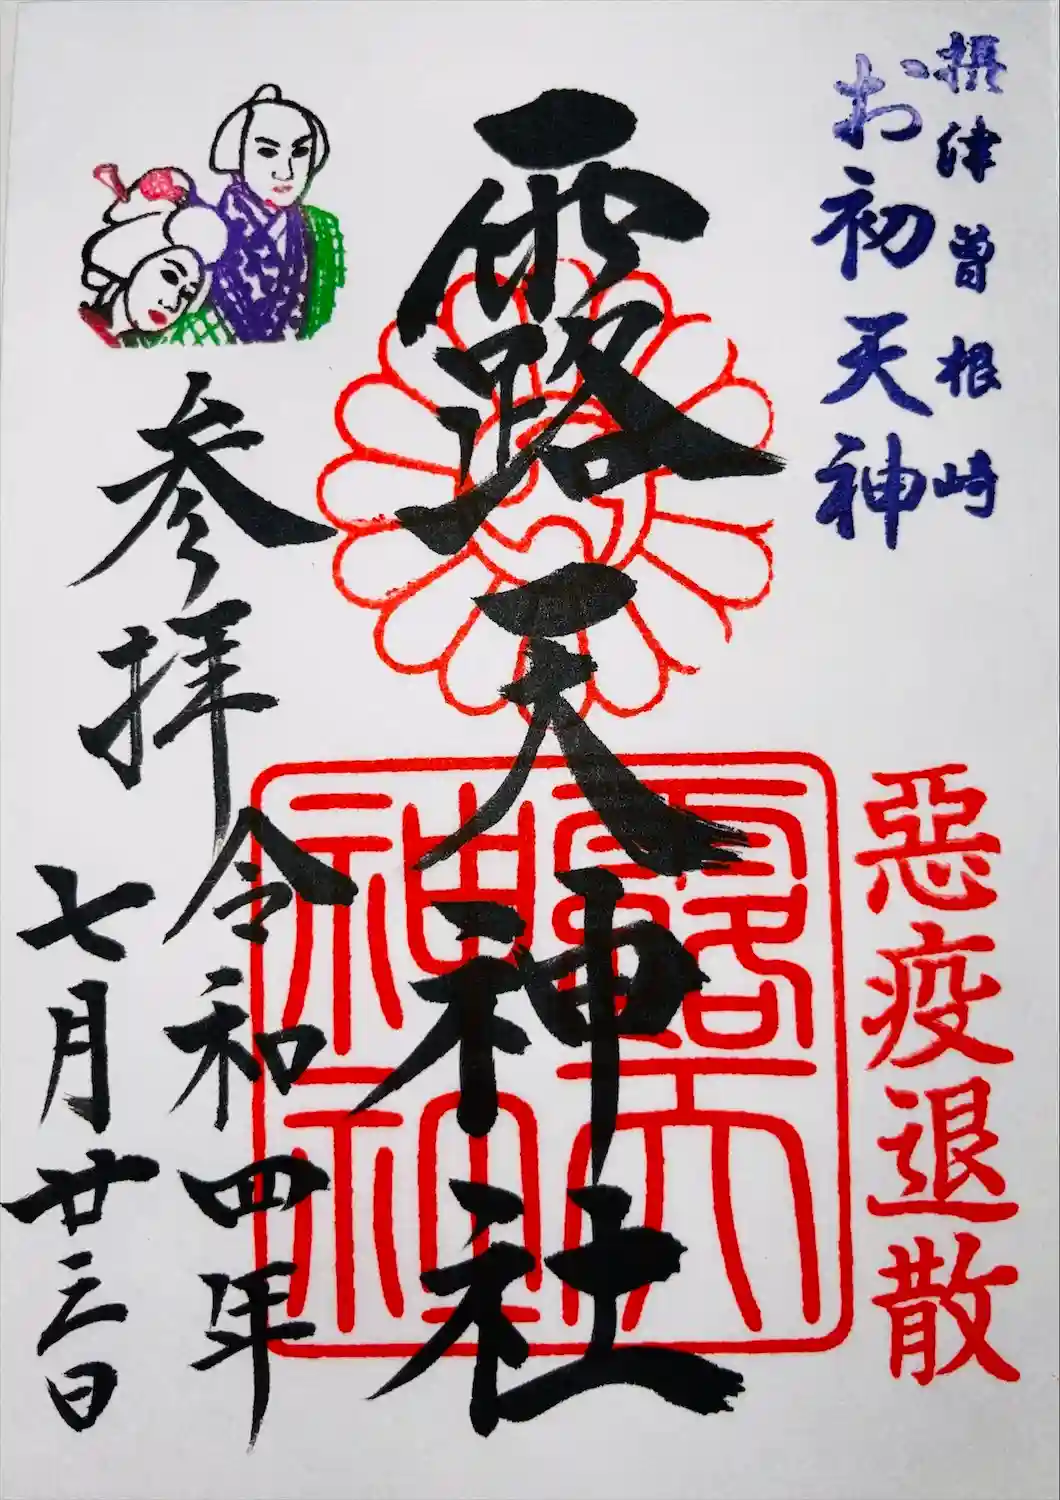 摂津曽根崎
お初天神
惡疫退散
露天神社
露天
神社
参拝
令和四年
七月廿三日